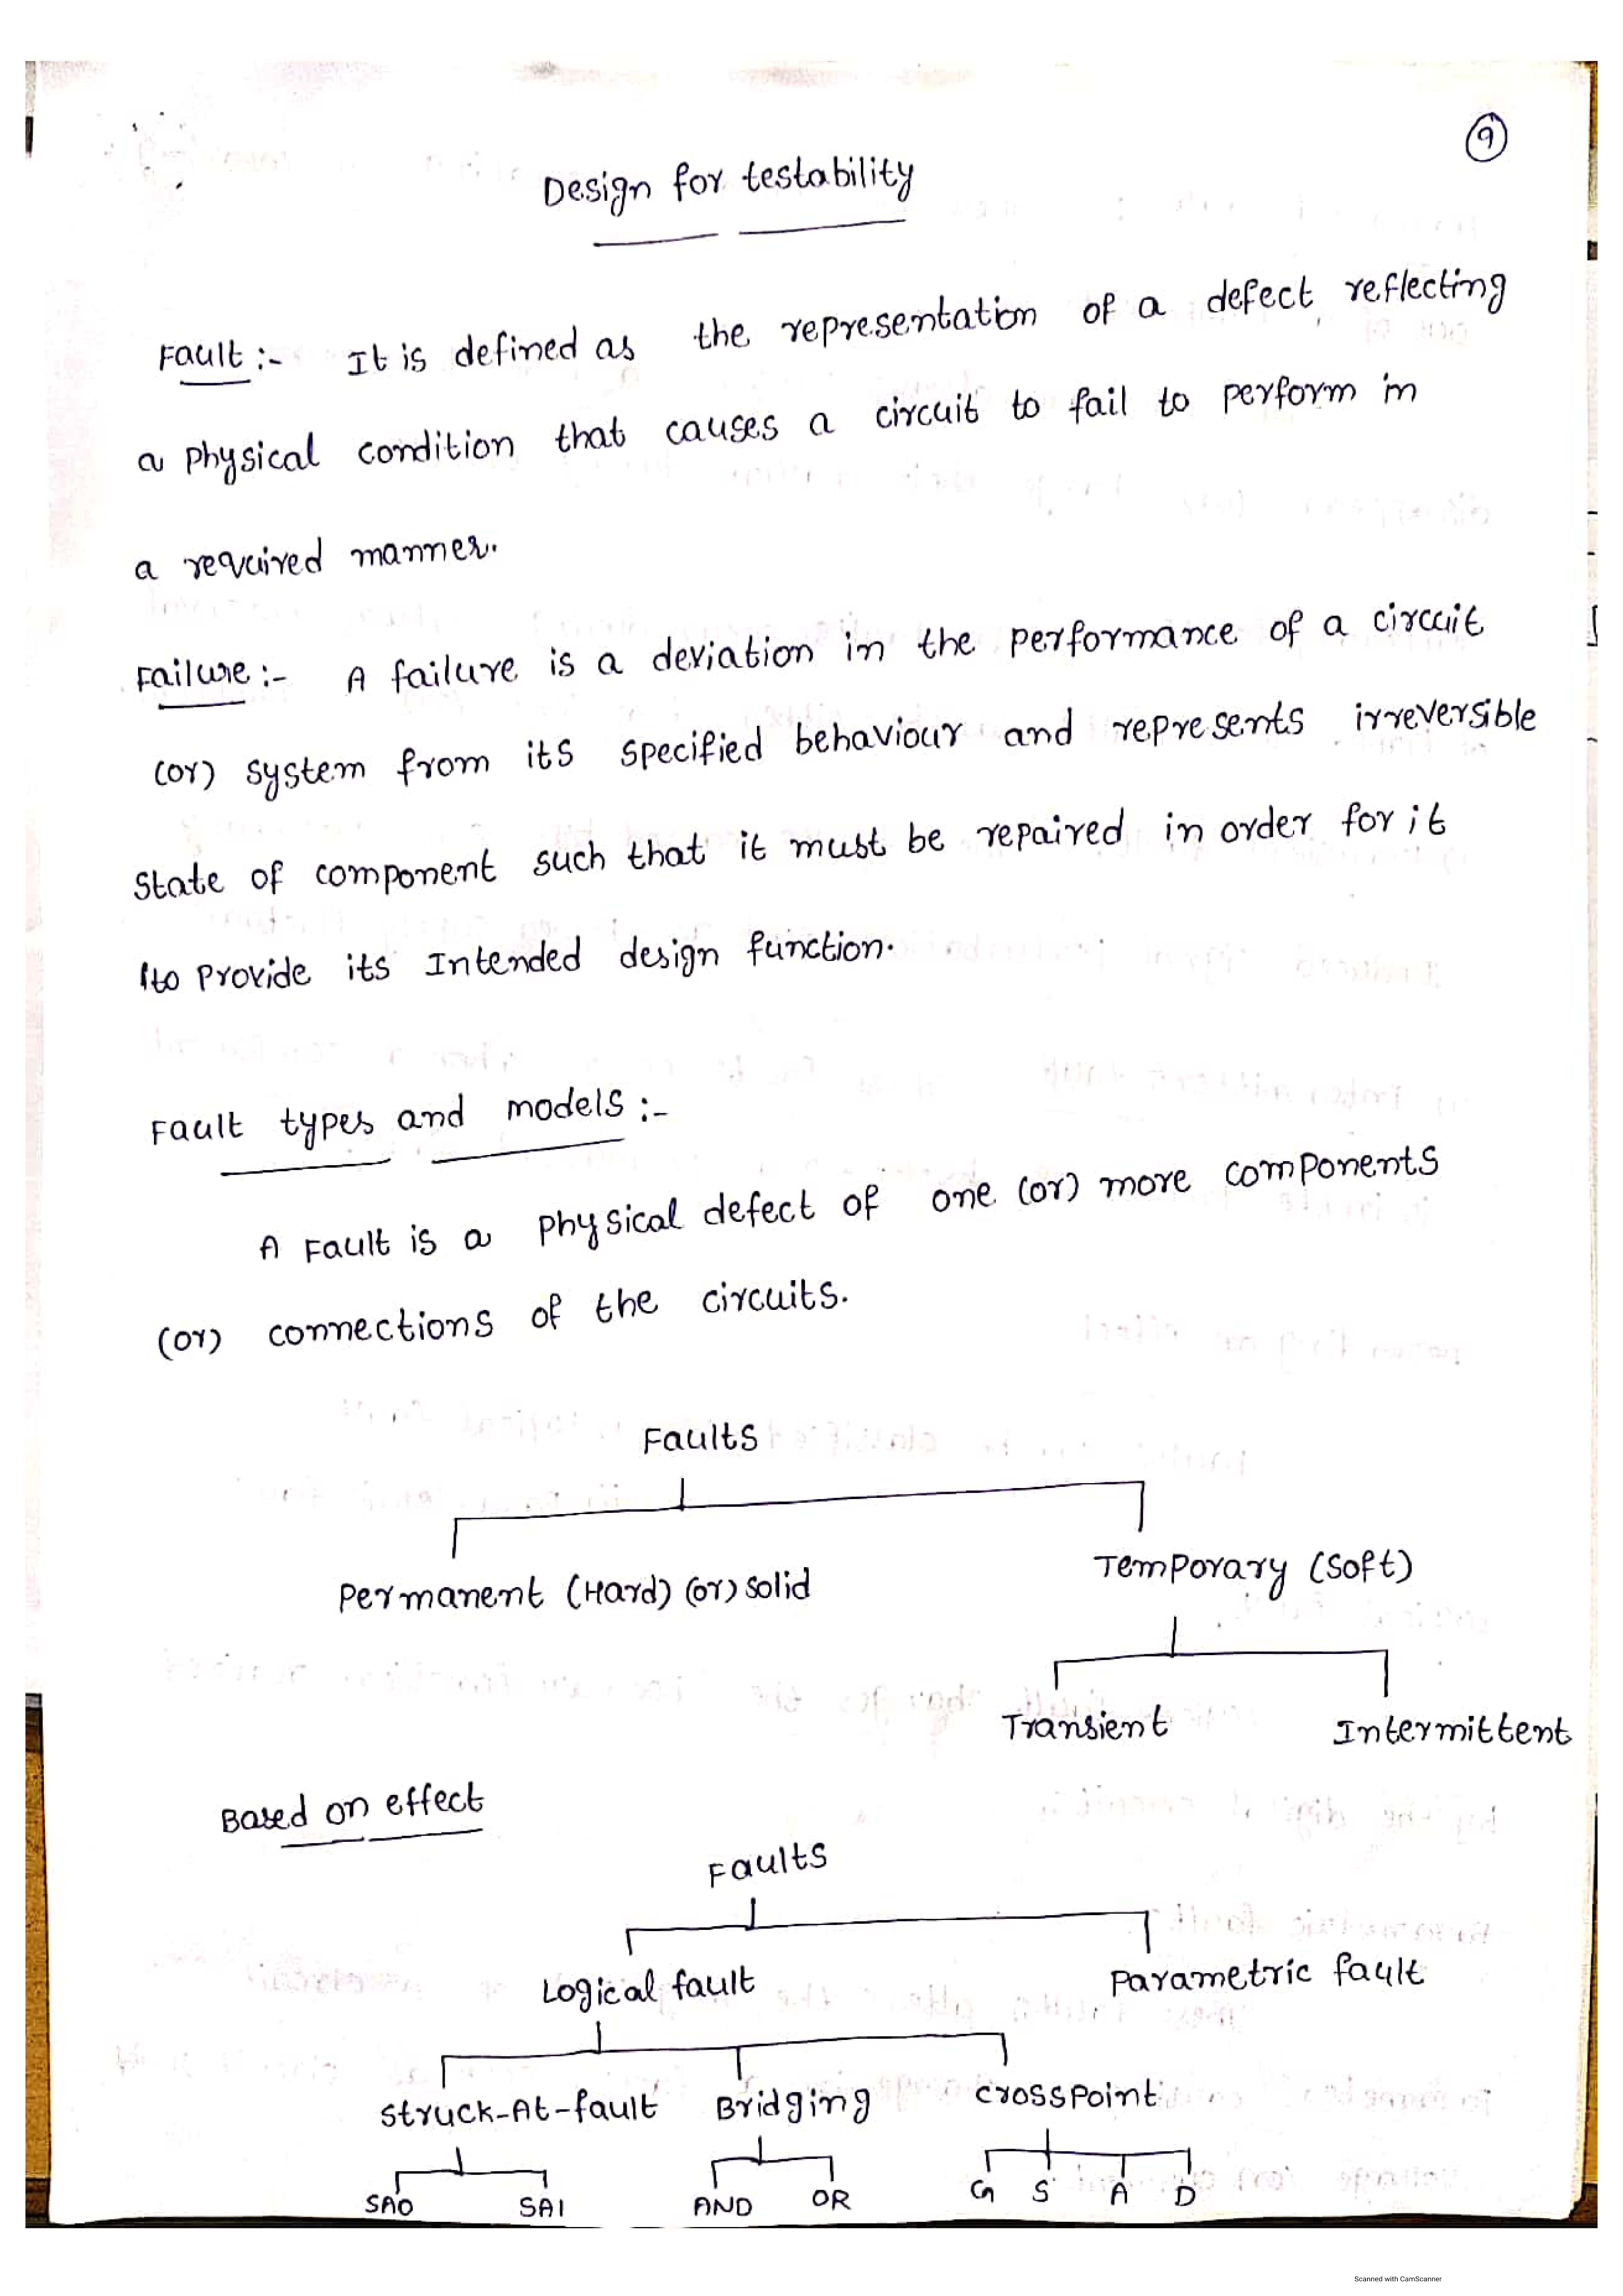 9
Design for testability
Fault :- It is defined as the representation of a defect reflecting
a physical condition that causes a circuit to fail to perform in
a required manner.
Failure :- A failure is a deviation in the performance of a circuit
(or) system from its specified behaviour and represents irreversible
state of component such that it must be repaired in order for it
to provide its Intended design function.
Fault types and models :-
A Fault is a physical defect of one (or) more components
(or) connections of the circuits.
Faults
Permanent (Hard) (or) solid
Temporary (Soft)
Transient
Intermittent
Based on effect
Faults
Logical fault
Parametric fault
Struck-At-fault
Bridging
Crosspoint
SA0
SA1
AND
OR
G
S
A
D
Scanned with CamScanner